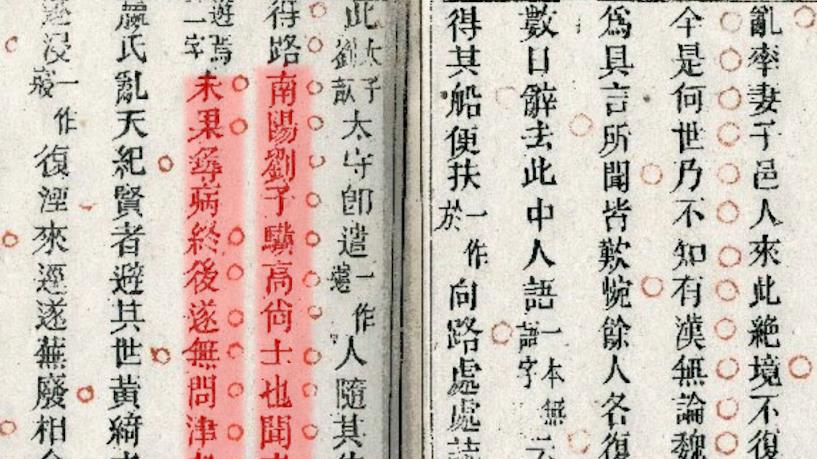 亂率妻子邑人來此絶境不復
今是何世乃不知有漢無論魏
爲具言所聞皆歎惋餘人各復
數日辭去此中人語一本無語字云
得其船便扶一作於向路處處誌
此劉歆太守即遣一作人隨其
得路南陽劉子驥高尚士也聞
遊焉一字未果尋病終後遂無問津
嬴氏亂天紀賢者避其世黃綺
浸一作復湮來逕遂蕪廢相